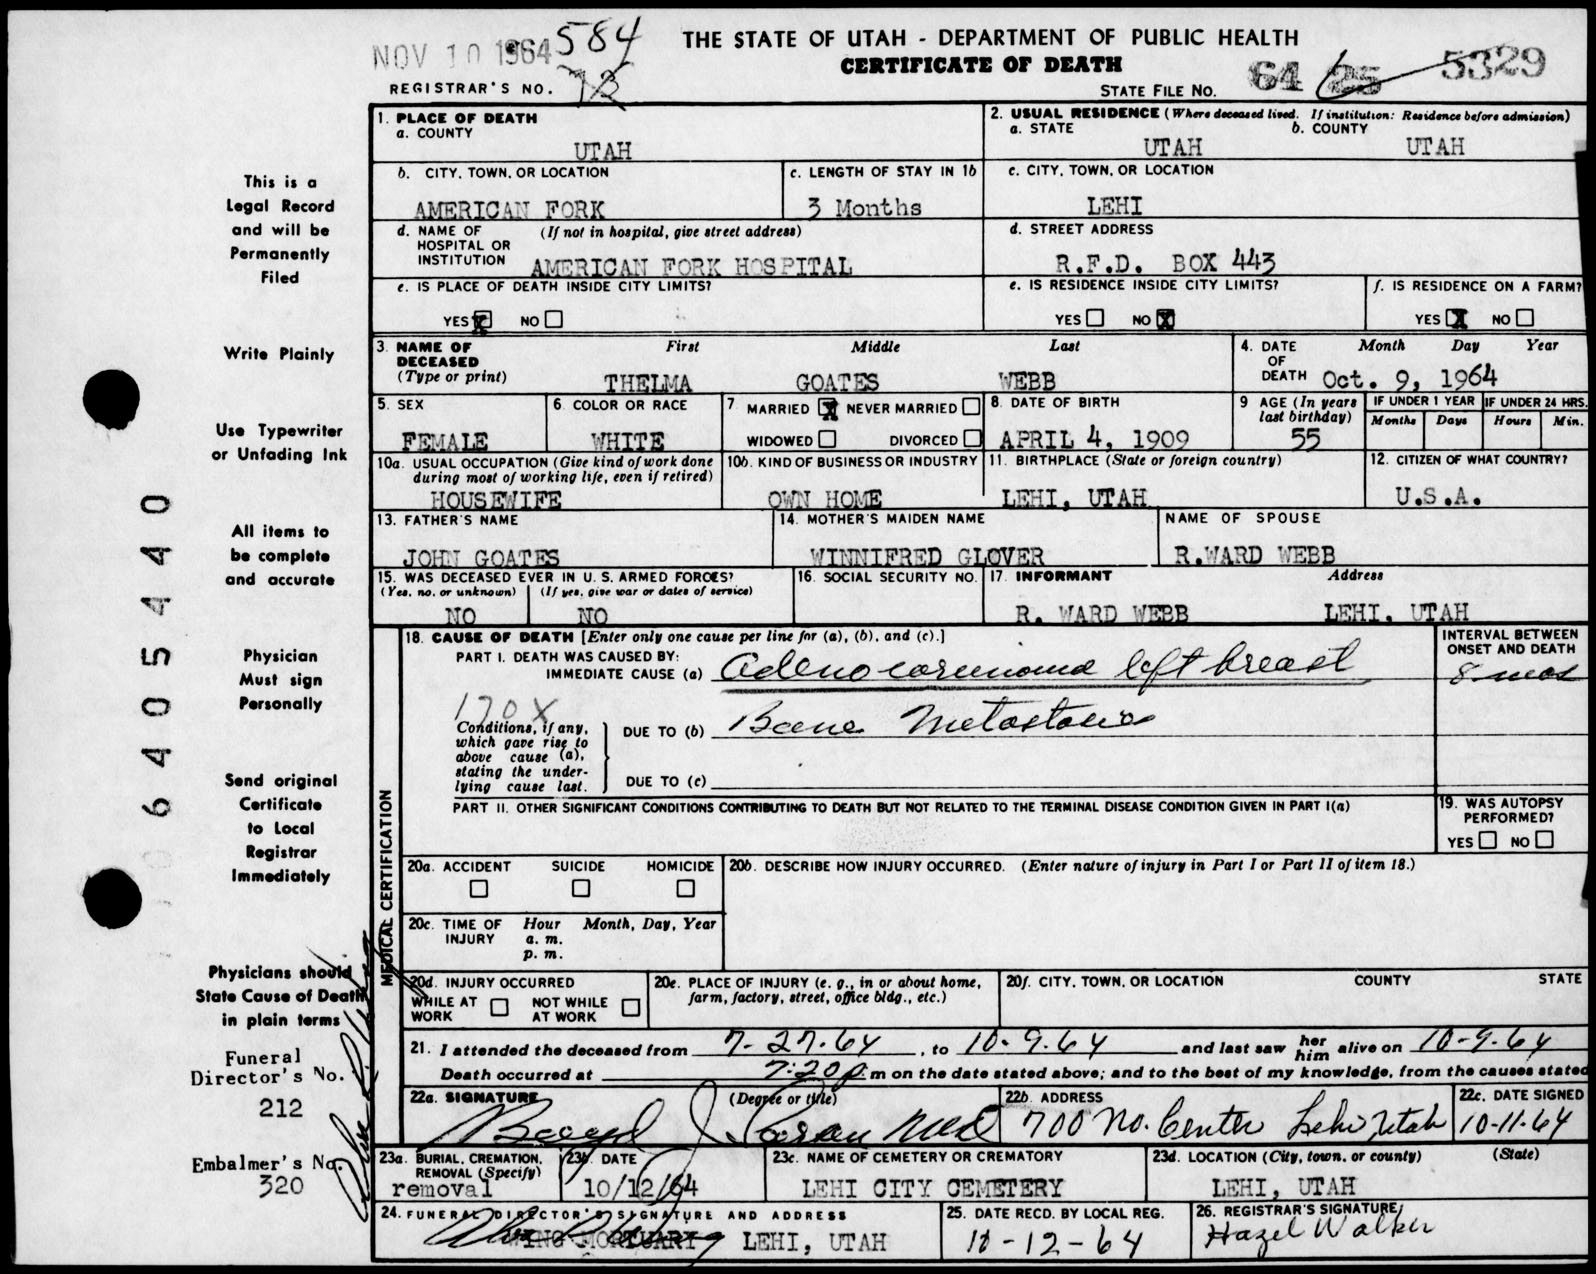 NOV 10 1964 584 THE STATE OF UTAH - DEPARTMENT OF PUBLIC HEALTH
CERTIFICATE OF DEATH
REGISTRAR'S NO. 72 STATE FILE NO. 64 25 5329
1. PLACE OF DEATH
a. COUNTY
UTAH
2. USUAL RESIDENCE (Where deceased lived. If institution: Residence before admission)
a. STATE b. COUNTY
UTAH UTAH
b. CITY, TOWN, OR LOCATION
AMERICAN FORK
c. LENGTH OF STAY IN 1b
3 Months
c. CITY, TOWN, OR LOCATION
LEHI
d. NAME OF HOSPITAL OR INSTITUTION (If not in hospital, give street address)
AMERICAN FORK HOSPITAL
d. STREET ADDRESS
R.F.D. BOX 443
e. IS PLACE OF DEATH INSIDE CITY LIMITS?
YES X NO
e. IS RESIDENCE INSIDE CITY LIMITS?
YES NO X
f. IS RESIDENCE ON A FARM?
YES X NO
3. NAME OF DECEASED (Type or print) First Middle Last
THELMA GOATES WEBB
4. DATE OF DEATH Month Day Year
Oct. 9, 1964
5. SEX
FEMALE
6. COLOR OR RACE
WHITE
7. MARRIED X NEVER MARRIED
WIDOWED DIVORCED
8. DATE OF BIRTH
APRIL 4, 1909
9 AGE (In years last birthday)
55
IF UNDER 1 YEAR
Months Days
IF UNDER 24 HRS.
Hours Min.
10a. USUAL OCCUPATION (Give kind of work done during most of working life, even if retired)
HOUSEWIFE
10b. KIND OF BUSINESS OR INDUSTRY
OWN HOME
11. BIRTHPLACE (State or foreign country)
LEHI, UTAH
12. CITIZEN OF WHAT COUNTRY?
U.S.A.
13. FATHER'S NAME
JOHN GOATES
14. MOTHER'S MAIDEN NAME
WINNIFRED GLOVER
NAME OF SPOUSE
R.WARD WEBB
15. WAS DECEASED EVER IN U. S. ARMED FORCES?
(Yes, no, or unknown) (If yes, give war or dates of service)
NO NO
16. SOCIAL SECURITY NO.
17. INFORMANT Address
R. WARD WEBB LEHI, UTAH
MEDICAL CERTIFICATION
18. CAUSE OF DEATH [Enter only one cause per line for (a), (b), and (c).]
PART I. DEATH WAS CAUSED BY:
IMMEDIATE CAUSE (a) Adenocarcinoma left breast
INTERVAL BETWEEN ONSET AND DEATH
8 mos
170X
Conditions, if any, which gave rise to above cause (a), stating the underlying cause last.
DUE TO (b) Bone Metastasis
DUE TO (c)
PART II. OTHER SIGNIFICANT CONDITIONS CONTRIBUTING TO DEATH BUT NOT RELATED TO THE TERMINAL DISEASE CONDITION GIVEN IN PART I(a)
19. WAS AUTOPSY PERFORMED?
YES NO
20a. ACCIDENT SUICIDE HOMICIDE
20b. DESCRIBE HOW INJURY OCCURRED. (Enter nature of injury in Part I or Part II of item 18.)
20c. TIME OF INJURY Hour Month, Day, Year
a. m.
p. m.
20d. INJURY OCCURRED
WHILE AT WORK NOT WHILE AT WORK
20e. PLACE OF INJURY (e. g., in or about home, farm, factory, street, office bldg., etc.)
20f. CITY, TOWN, OR LOCATION COUNTY STATE
21. I attended the deceased from 7-27-64, to 10-9-64 and last saw her him alive on 10-9-64
Death occurred at 7:20 p.m on the date stated above; and to the best of my knowledge, from the causes stated
22a. SIGNATURE (Degree or title)
Boyd J Larsen MD
22b. ADDRESS
700 No. Center Lehi Utah
22c. DATE SIGNED
10-11-64
23a. BURIAL, CREMATION, REMOVAL (Specify)
removal
23b. DATE
10/12/64
23c. NAME OF CEMETERY OR CREMATORY
LEHI CITY CEMETERY
23d. LOCATION (City, town, or county) (State)
LEHI, UTAH
24. FUNERAL DIRECTOR'S SIGNATURE AND ADDRESS
WING MORTUARY LEHI, UTAH
25. DATE RECD. BY LOCAL REG.
10-12-64
26. REGISTRAR'S SIGNATURE
Hazel Walker
This is a
Legal Record
and will be
Permanently
Filed
Write Plainly
Use Typewriter
or Unfading Ink
All items to
be complete
and accurate
Physician
Must sign
Personally
Send original
Certificate
to Local
Registrar
Immediately
Physicians should
State Cause of Death
in plain terms
Funeral
Director's No.
212
Embalmer's No.
320
64 05440